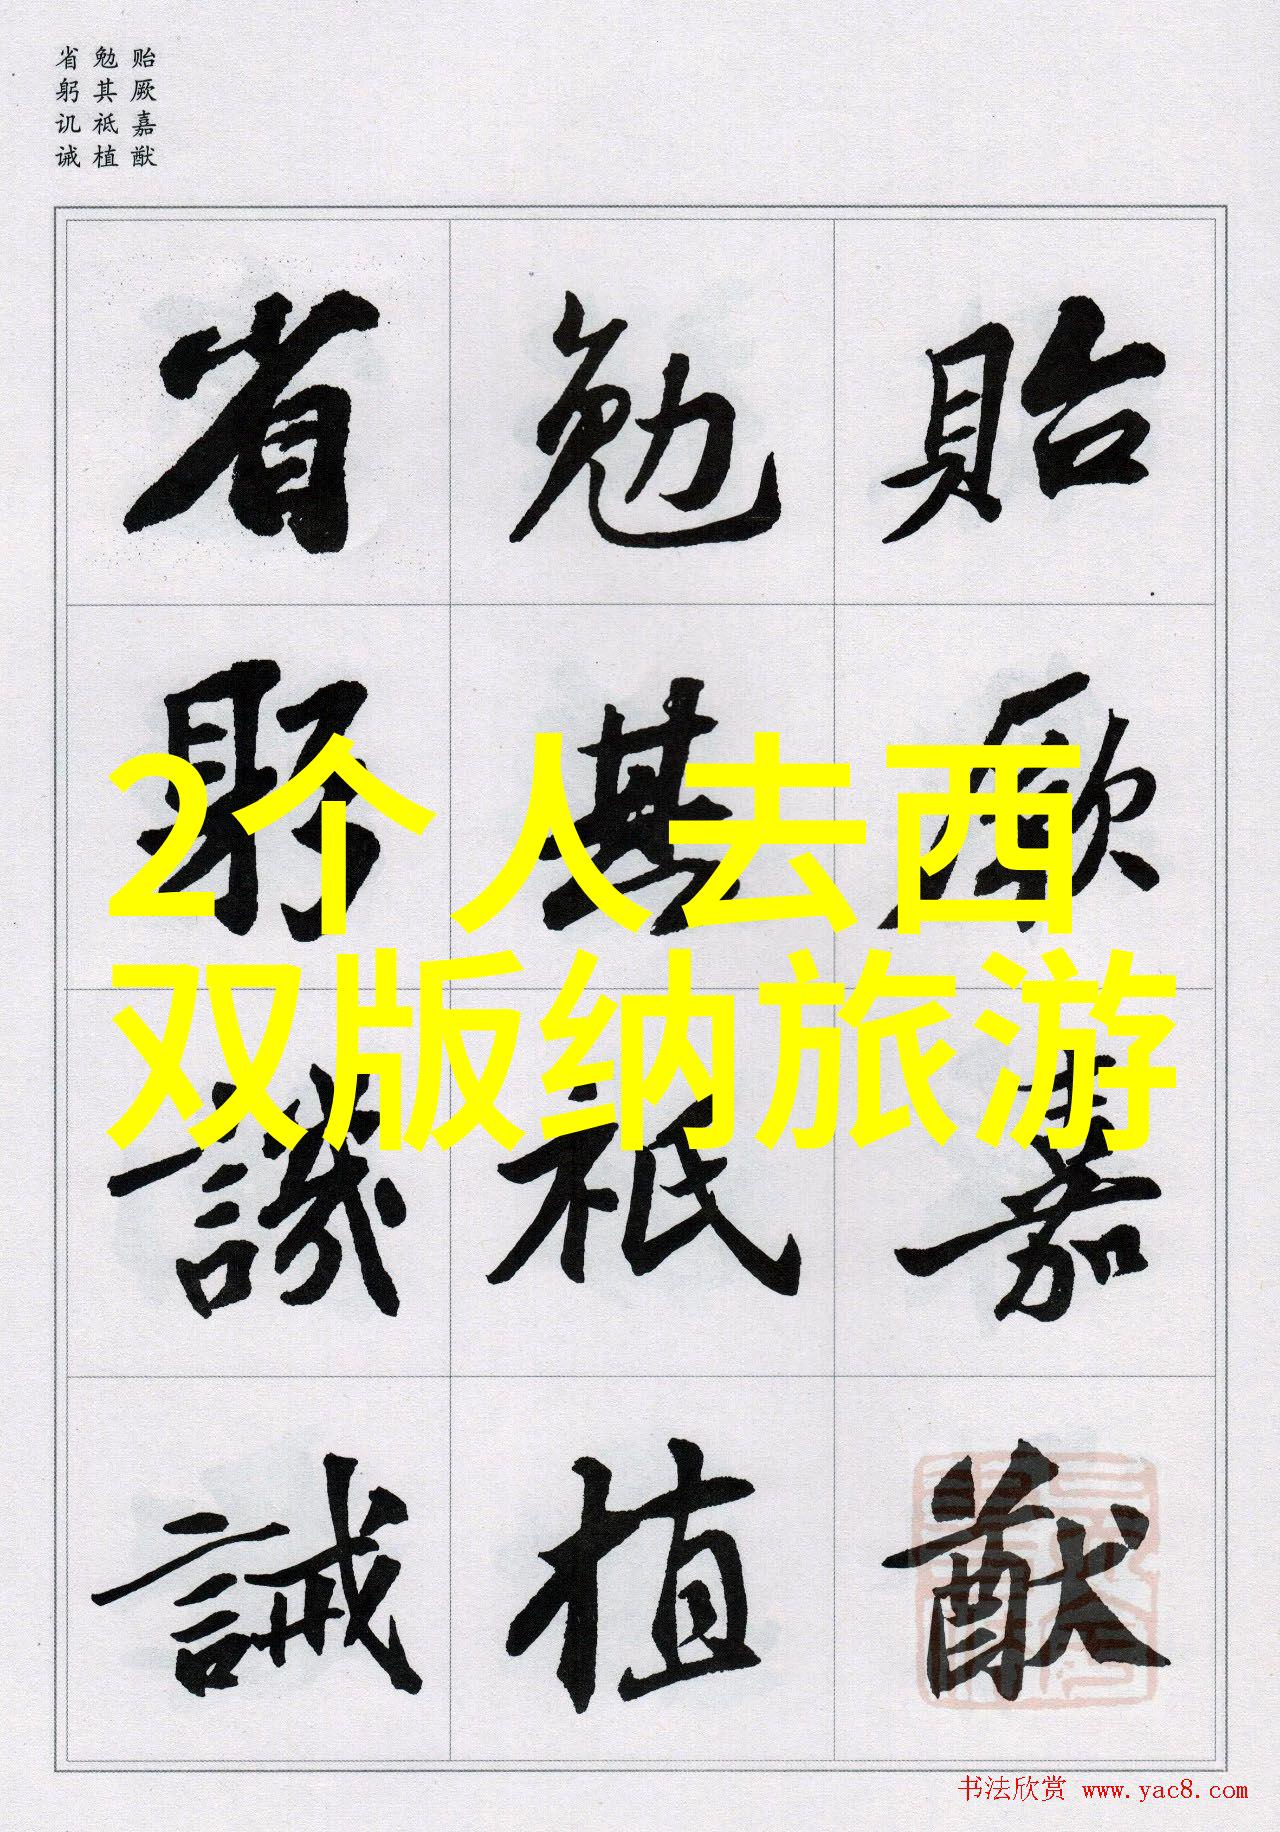 省 勉 贻
躬 其 厥
讥 祗 嘉
诫 植 猷
省 勉 貽
躬 其 厥
譏 祗 嘉
誡 植 猷
2个人去西
双版纳旅游
书法欣赏 www.yac8.com